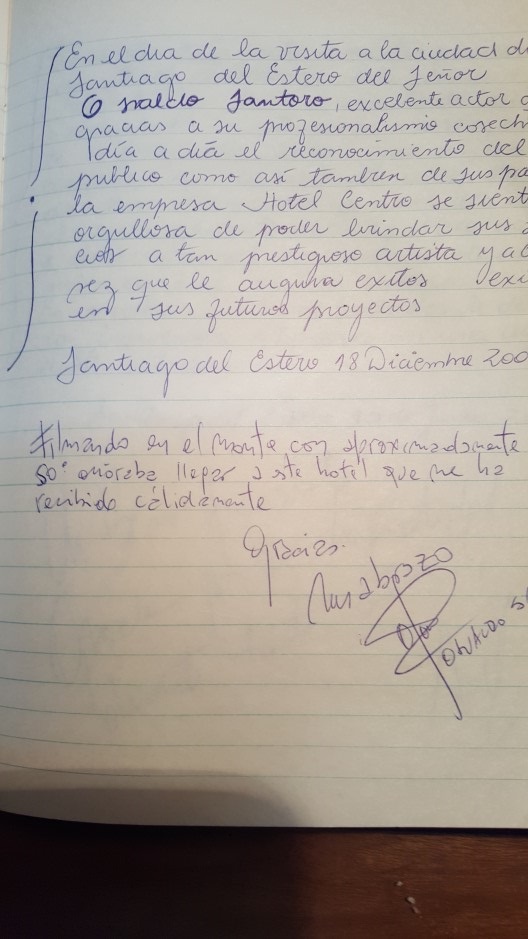 En el dia de la visita a la ciudad d
Santiago del Estero del Señor
Osvaldo Santoro, excelente actor
gracias a su profesionalismo cosech
día a día el reconocimiento del
publico como así tambien de sus pa
la empresa Hotel Centro se sient
orgullosa de poder brindar sus
cios a tan prestigioso artista y a
vez que le augura exitos exi
en sus futuros proyectos
Santiago del Estero 18 Diciembre 200
Filmando en el monte con aproximadamente
50° añoraba llegar a este hotel que me ha
recibido cálidamente
Gracias.
Un abrazo
OSVALDO